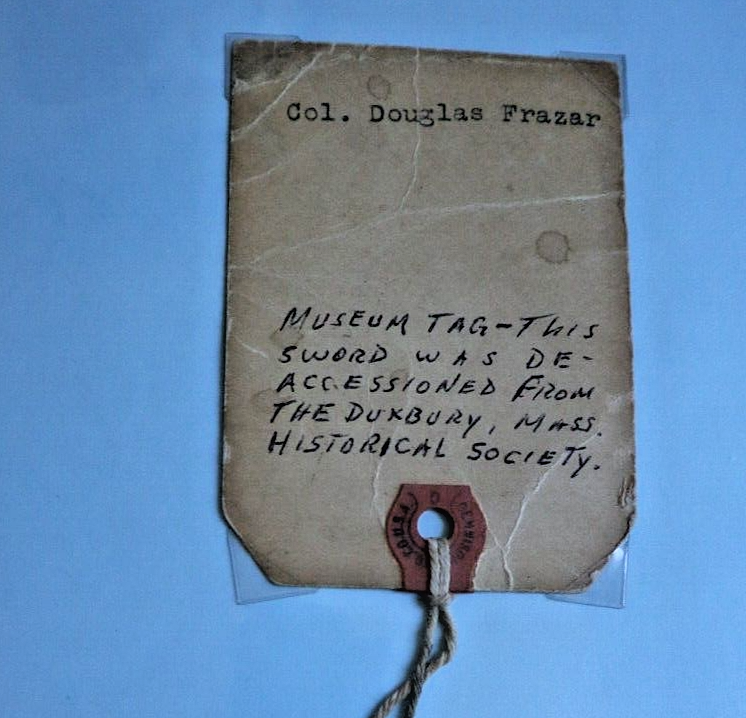 Col. Douglas Frazar
MUSEUM TAG-THIS
SWORD WAS DE-
ACCESSIONED FROM
THE DUXBURY, MASS.
HISTORICAL SOCIETY.